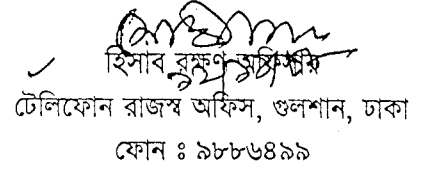 হিসাব রক্ষণ অফিসার
টেলিফোন রাজস্ব অফিস, গুলশান, ঢাকা
ফোন ঃ ৯৮৮৬৪৯৯